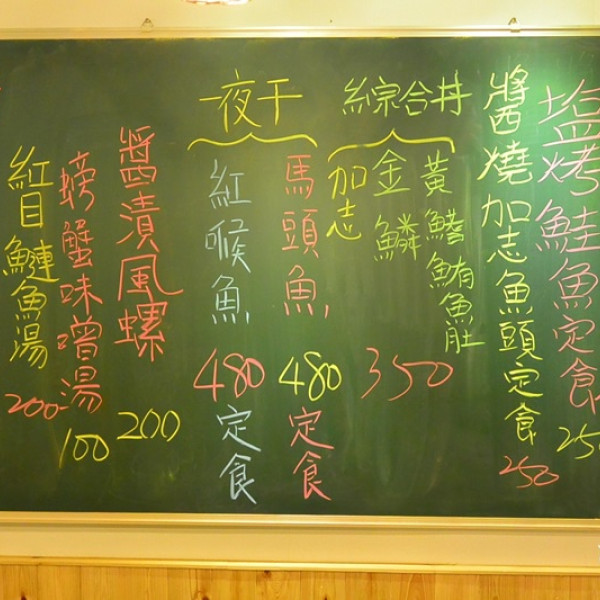 塩烤鮭魚定食
250
醬燒加志魚頭定食
250
綜合丼
黃鰭鮪魚肚
金鱗
加志
350
一夜干
馬頭魚
480
定食
紅喉魚
480
定食
醬漬風螺
200
螃蟹味噌湯
100
紅目鰱魚湯
200